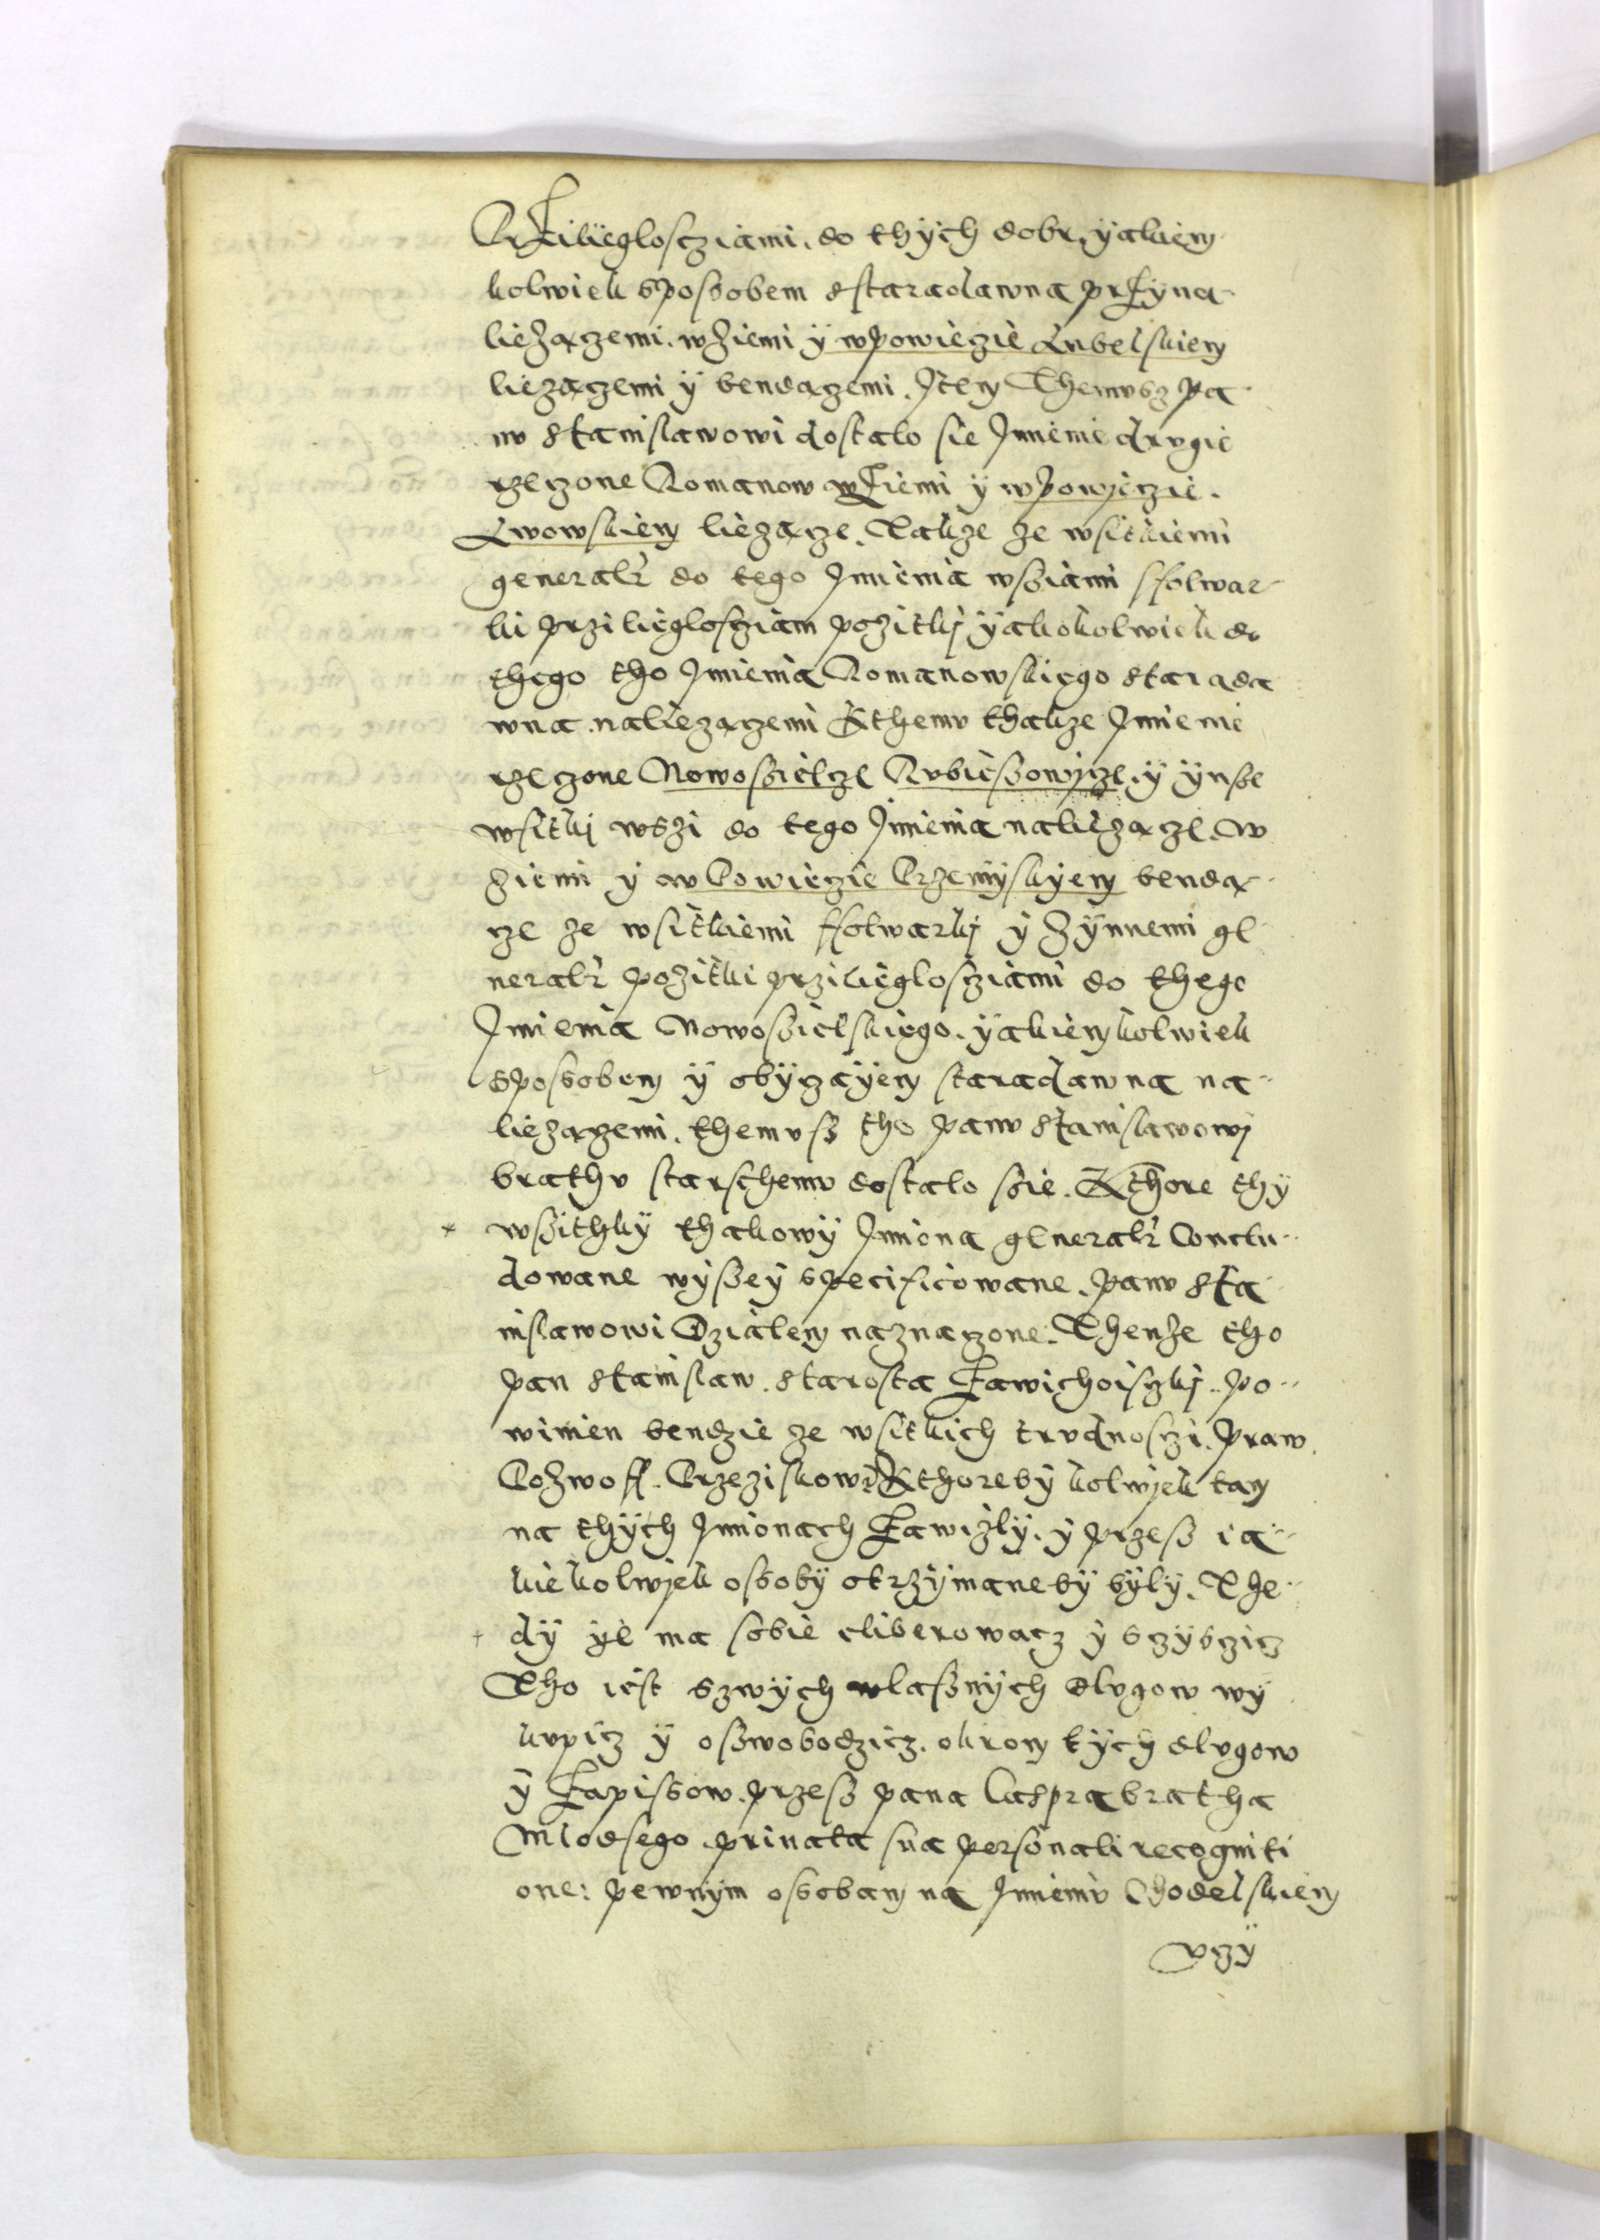 Przÿliegloscziami. do thÿch dobr, ÿakiem
kolwiek sposobem staradawna przÿna
liezaczemi. wziemi ÿ wpowieczie Lubelskiem
liezaczemi ÿ bendaczemi. Item Themusz pa
nu Stanislawowi dostalo sie Imienie drugie
rzeczone Romanow wziemi ÿ wpowieczie.
Lwowskiem liezacze. Takze ze wsitkiemi
generalr do tego Imienia wssiami ffolwar
ki przilieglosciam pozitkj ÿakokolwiek do
thego tho Imienia Romanowskiego starada
wna naliezaczemi Kthemu thakze Imienie
rzeczone Nowossielcze Kubiessowycze, ÿ ÿnsse
wsitkj wszi do tego Imienia naliezacze. W
ziemi ÿ w Powieczie Przemÿskÿem benda
cze ze wsitkiemi ffolwarkj ÿ zÿnnemi ge
neralr pozitki przilieglosciami do thego
Imienia Nowossielskiego. ÿakiemkolwiek
sposobem ÿ obÿczaÿem staradawna na
liezaczemi. themuss tho panu Stanislawowj
brathu starschemu dostalo ssie. Kthore thÿ
wssithkÿ thakowÿ Imiona generalr Conclu
dowane wÿsseÿ specificowane. panu Sta
nislawowi Dzialem naznaczone. Thenze tho
pan Stanislaw. Starosta Zawichoisczkj. po
winien bendzie ze wsitkich trudnosczi. Praw.
Pozwoff. Przeziskow Kthorebÿ kolwiek tam
na thÿch Imionach Zawizlÿ. ÿ przess ia
kiekolwiek ossobÿ otrzÿmanebÿ bÿlÿ. The
dÿ ÿe ma sobie eliberowacz ÿ sczÿsczicz
Tho iest szwÿch wlassnÿch dlugow wÿ
kupicz ÿ osswobodzicz. okrom tÿch dlugow
ÿ Zapissow. przess pana Caspra bratha
Mlodsego. priuata sua personali recogniti
one: pewnÿm ossobam na Imieniu Chodelskiem
vczÿ